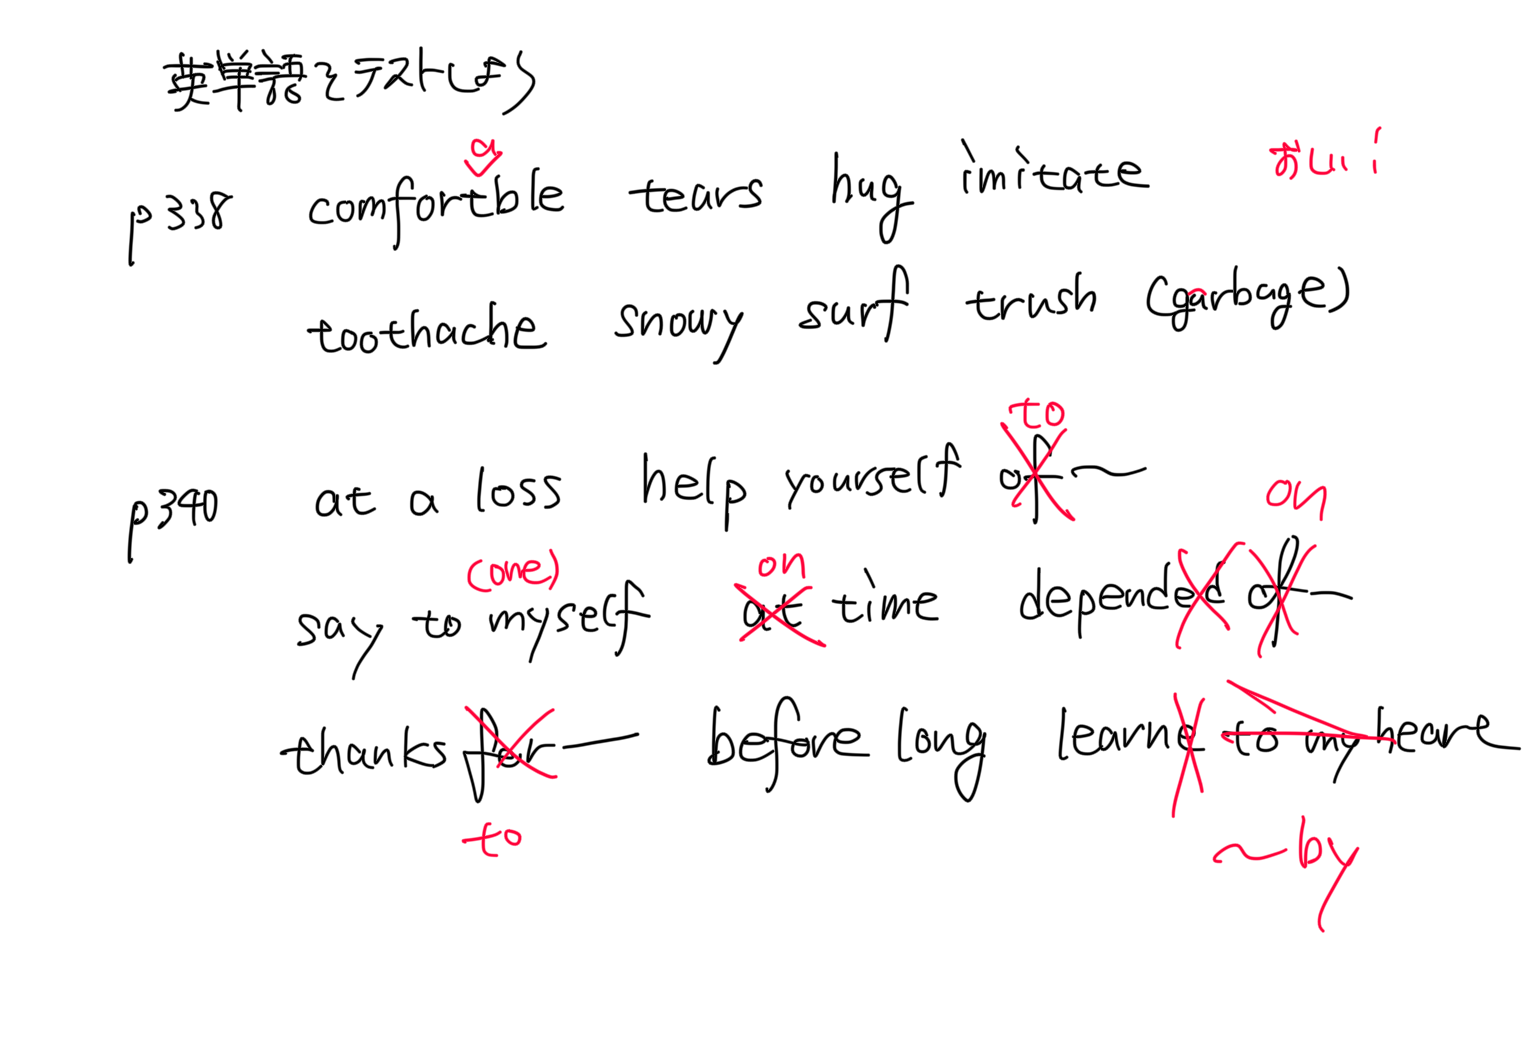 英単語をテストしよう
a
p338 comfortble tears hug imitate おしい!
toothache snowy surf trush (garbage)
to
p340 at a loss help yourself of〜
on
(one) on
say to myself at time depended of―
thanks for― before long learne to my heare
to 〜by